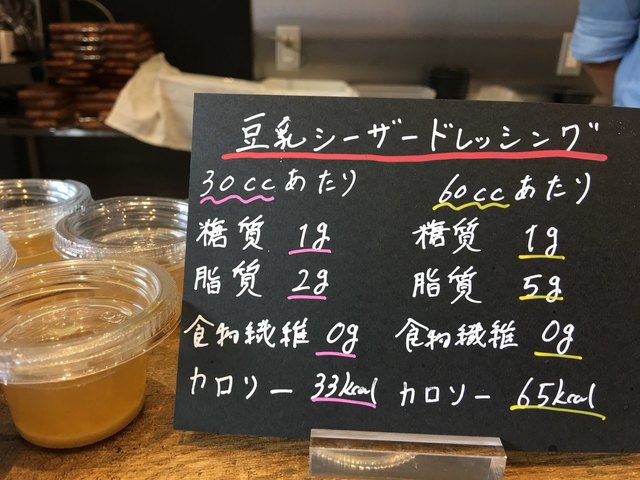 豆乳シーザードレッシング
30ccあたり 60ccあたり
糖質 1g 糖質 1g
脂質 2g 脂質 5g
食物繊維 0g 食物繊維 0g
カロリー 33kcal カロリー 65kcal